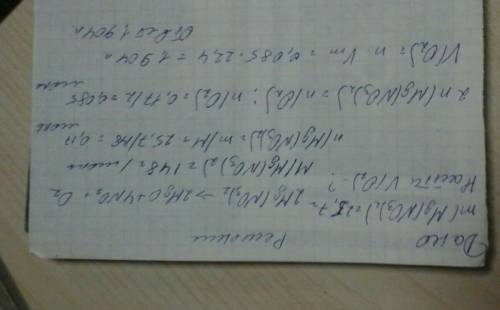 Дано Решение
m(Mg(NO3)2)=25,7г 2Mg(NO3)2 → 2MgO+4NO2+O2
Найти V(O2)-?
M(Mg(NO3)2)=148г/моль
n(Mg(NO3)2)=m/M=25,7/148=0,17
моль
2n(Mg(NO3)2)=n(O2); n(O2)=0,17/2=0,085
моль
V(O2)=n·Vm=0,085·22,4=1,904л
Ответ 1,904л